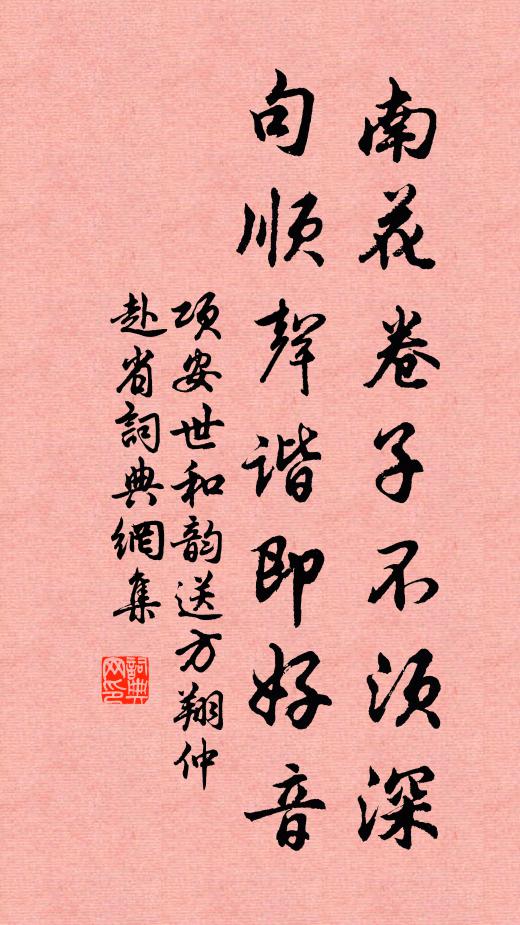 南花卷子不须深
句顺聲谐即好音
项安世和韵送方翔仲
赴省詞典網集
詞典网印